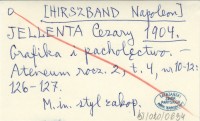 a [HIRSZBAND Napoleon]
JELLENTA Cezary 1904.
Grafika i pacholęctwo. –
Ateneum rocz. 2, t. 4, nr 10-12:
126-127.
M.in. styl zakop.